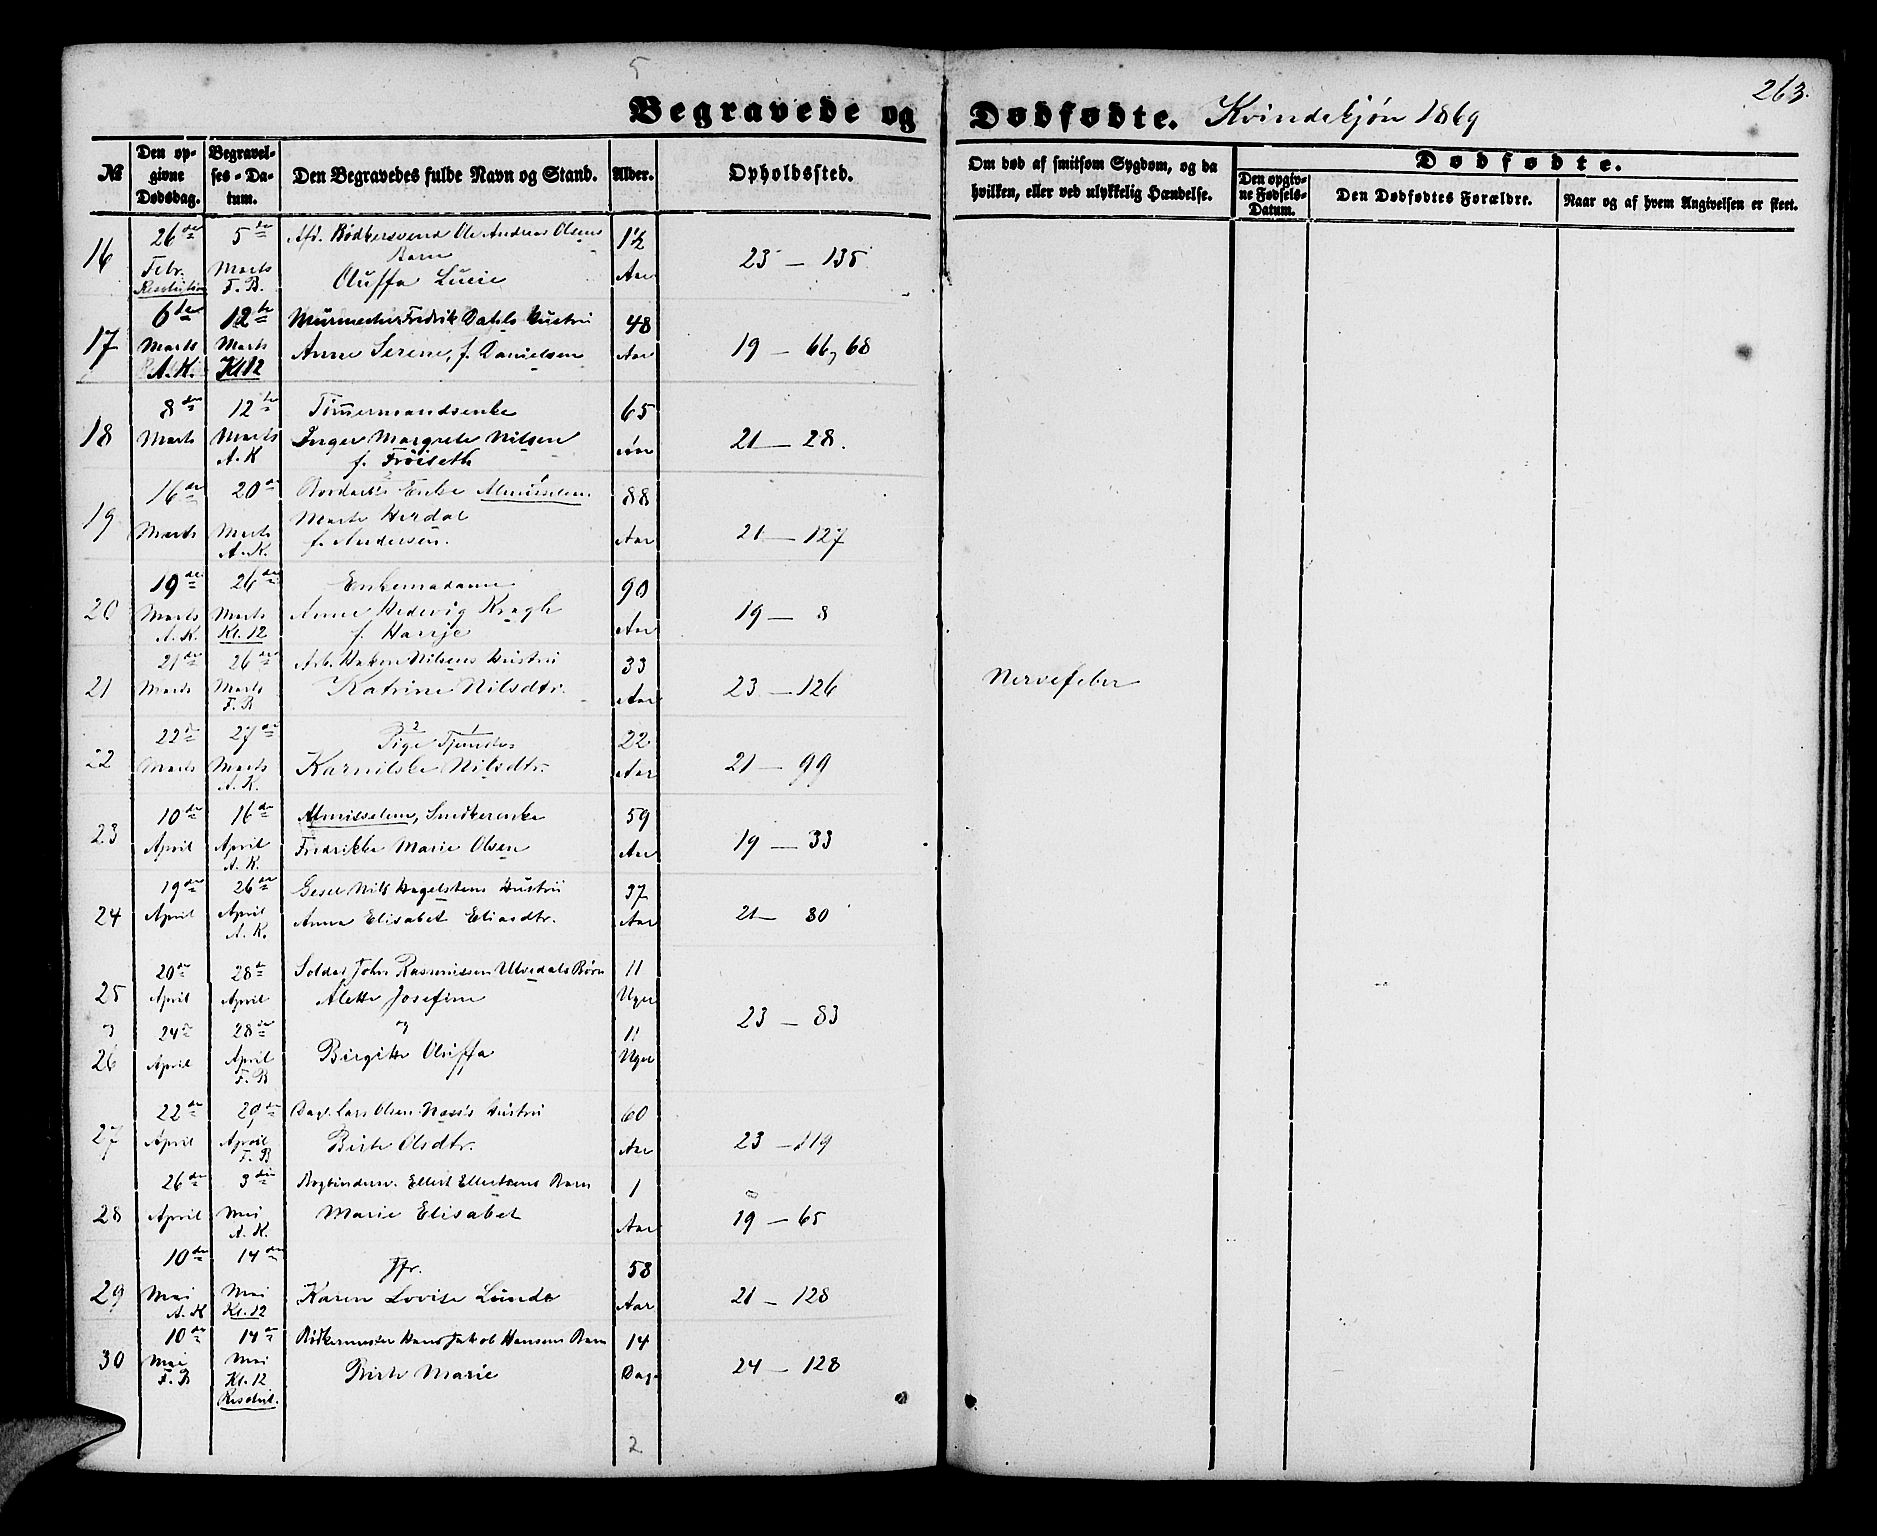 5
263.
Begravede og Dødfødte. Kvindekjøn 1869
№
Den opgivne Dødsdag.
Begravelses-Datum.
Den Begravedes fulde Navn og Stand.
Alder.
Opholdssted.
Om død af smitsom Sygdom, og da hvilken, eller ved ulykkelig Hændelse.
Dødfødte.
Den opgivne Fødsels-Datum.
Den Dødfødtes Forældre.
Naar og af hvem Angivelsen er skeet.
16 26de Febr. 5te Marts F. B. Afd. Bødkersvend Ole Andreas Olsens Barn
Oluffa Lucie 1½ Aar 23 — 135
17 6te Marts A. K. 12te Marts Kl 12 Murmester Fredrik Dahls Hustru
Anne Serene, f. Danielsen 48 Aar 19 — 66, 68
18 8de Marts 12te Marts A. K Tømmermandsenke
Inger Margrete Nilsen
f. Frøiseth 65 Aar 21 — 28.
19 16de Marts 20de Marts A. K. Enke Almisselem
Marte Herdal
f. Andersen. 88 Aar 21 — 127
20 19de Marts A. K. 26de Marts Kl. 12 Enkemadame
Anne Hedevig Kragh
f. Harrje 90 Aar 19 — 8
21 21de Marts 26de Marts F. B Arb. Haken Nilsens Hustru
Katrine Nilsdtr. 33 Aar 23 — 126 Nervefeber
22 22de Marts 27de Marts A. K. Pige Tjenestes
Karnilske Nilsdtr. 22 Aar 21 — 99
23 10de April 16de April A. K. Almisselem, Snedkerenke
Fredrikke Marie Olsen 59 Aar 19 — 33
24 19de April 26de April A. K. Gesel Nils Hagelstens Hustru
Anna Elisabet Eliasdtr. 37 Aar 21 — 80
25 20de April 28de April Soldat John Rasmussen Ulvedals Børn
Alette Josefine 11 Uger 23 — 83
og
26 24de April 28de April F. B Birgitte Oluffa 11 Uger
27 22de April 29de April F. B Dagl. Lars Olsen Næss's Hustru
Birte Olsdtr. 60 Aar 23 — 119
28 26de April 3die Mai A. K. Bogbindersv. Ellert Ellertsens Barn
Marie Elisabet 1 Aar 19 — 65
29 10de Mai A. K 14de Mai Kl. 12 Jfr.
Karen Lovise Lunde 58 Aar 21 — 128
30 10de Mai F. B 14de Mai Kl. 12 Resolut. Bødkermester Hans Jakob Hansens Barn
Birte Marie 14 Dage 24 — 128
2